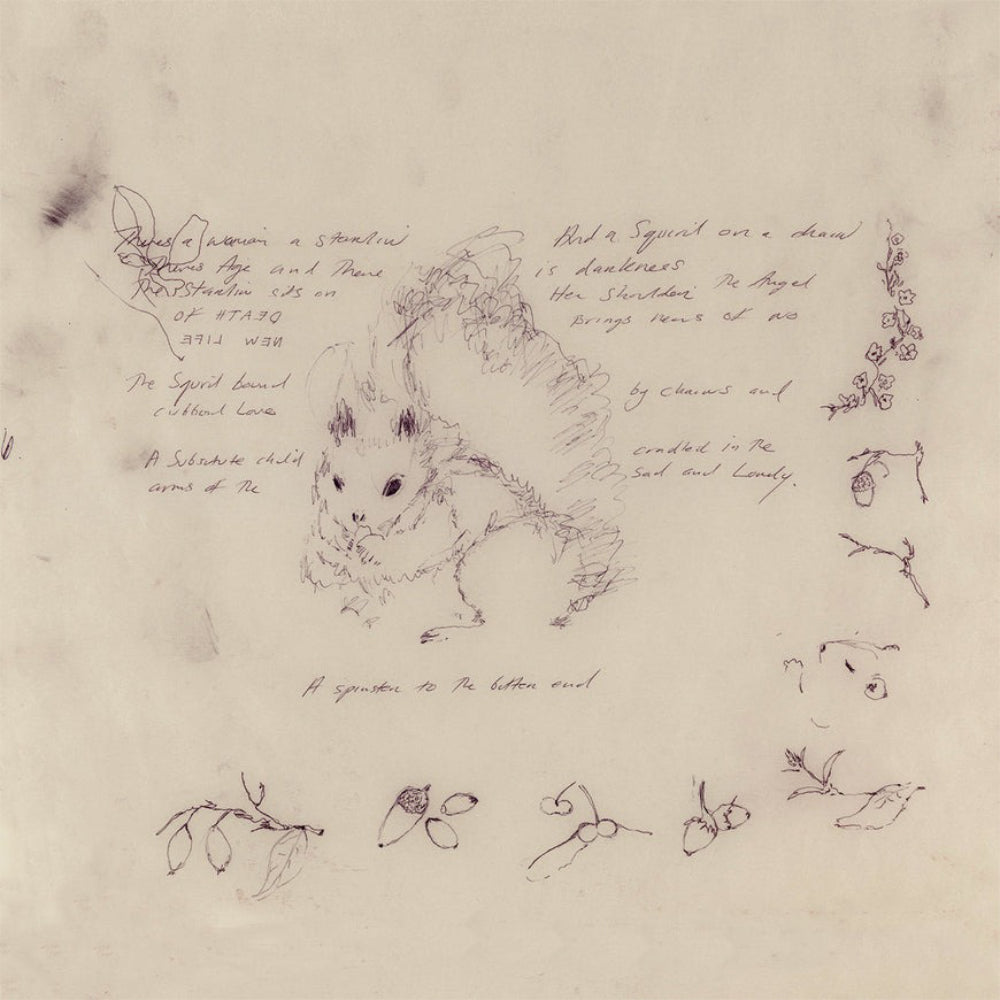 Theres a woman a starlin' And a Squiril on a chain
Theres Age and There is darkness
The Starlin sits on Her Shoulder The Angel
OF HTAED Brings news of no
EFIL WEN
The Squiril bound by chains and
cubbord Love
A Substitute child cradled in The
arms of The Sad and Lonely.
A spinster to The bitter end